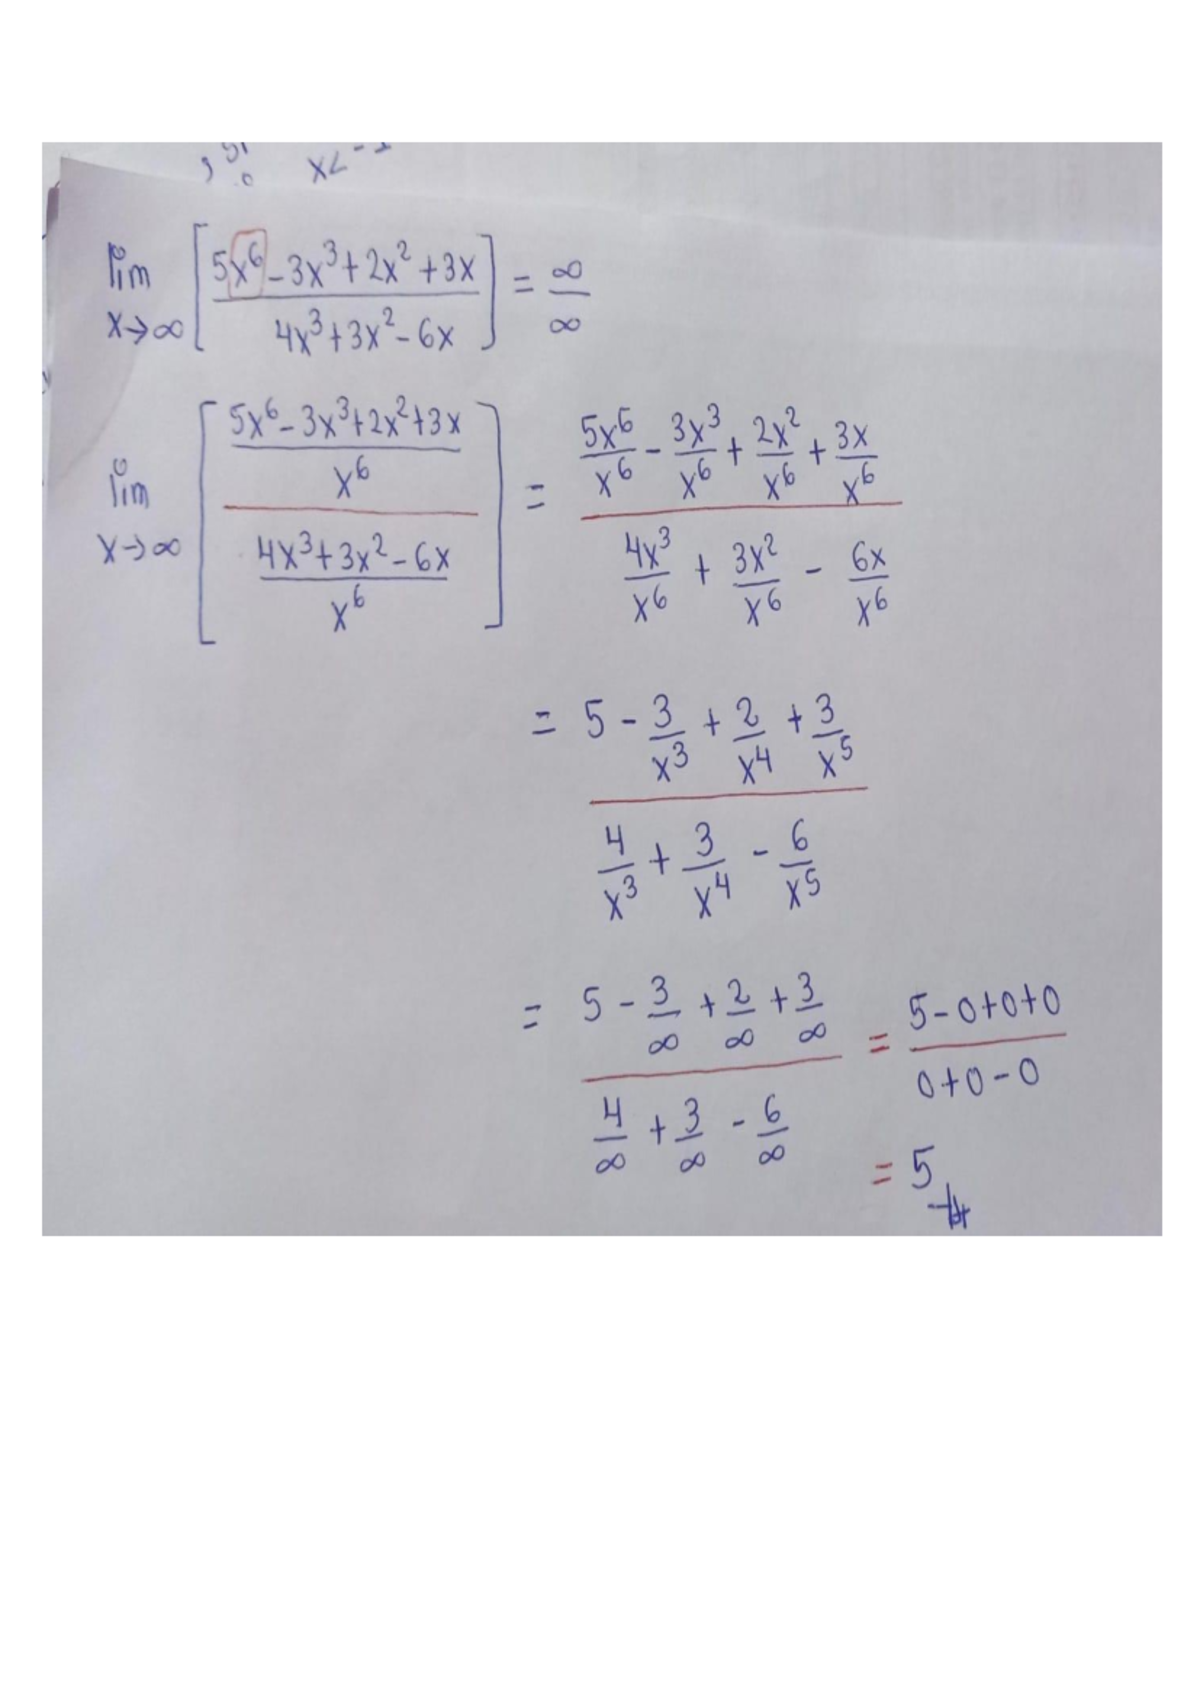 x<-1
lim x→∞ [ (5x⁶ - 3x³ + 2x² + 3x) / (4x³ + 3x² - 6x) ] = ∞/∞
lim x→∞ [ ((5x⁶ - 3x³ + 2x² + 3x) / x⁶) / ((4x³ + 3x² - 6x) / x⁶) ] = (5x⁶/x⁶ - 3x³/x⁶ + 2x²/x⁶ + 3x/x⁶) / (4x³/x⁶ + 3x²/x⁶ - 6x/x⁶)
= (5 - 3/x³ + 2/x⁴ + 3/x⁵) / (4/x³ + 3/x⁴ - 6/x⁵)
= (5 - 3/∞ + 2/∞ + 3/∞) / (4/∞ + 3/∞ - 6/∞) = (5 - 0 + 0 + 0) / (0 + 0 - 0)
= 5